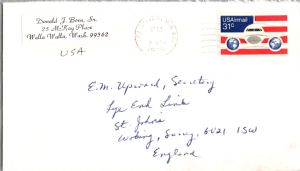 Donald J. Boen, Sr.
25 McKay Place
Walla Walla, Wash. 99362
USA
USAirmail
31c
E.M. Upward, Secretary
Lye End Link
St. Johns
Woking, Surrey, GU21 1SW
England